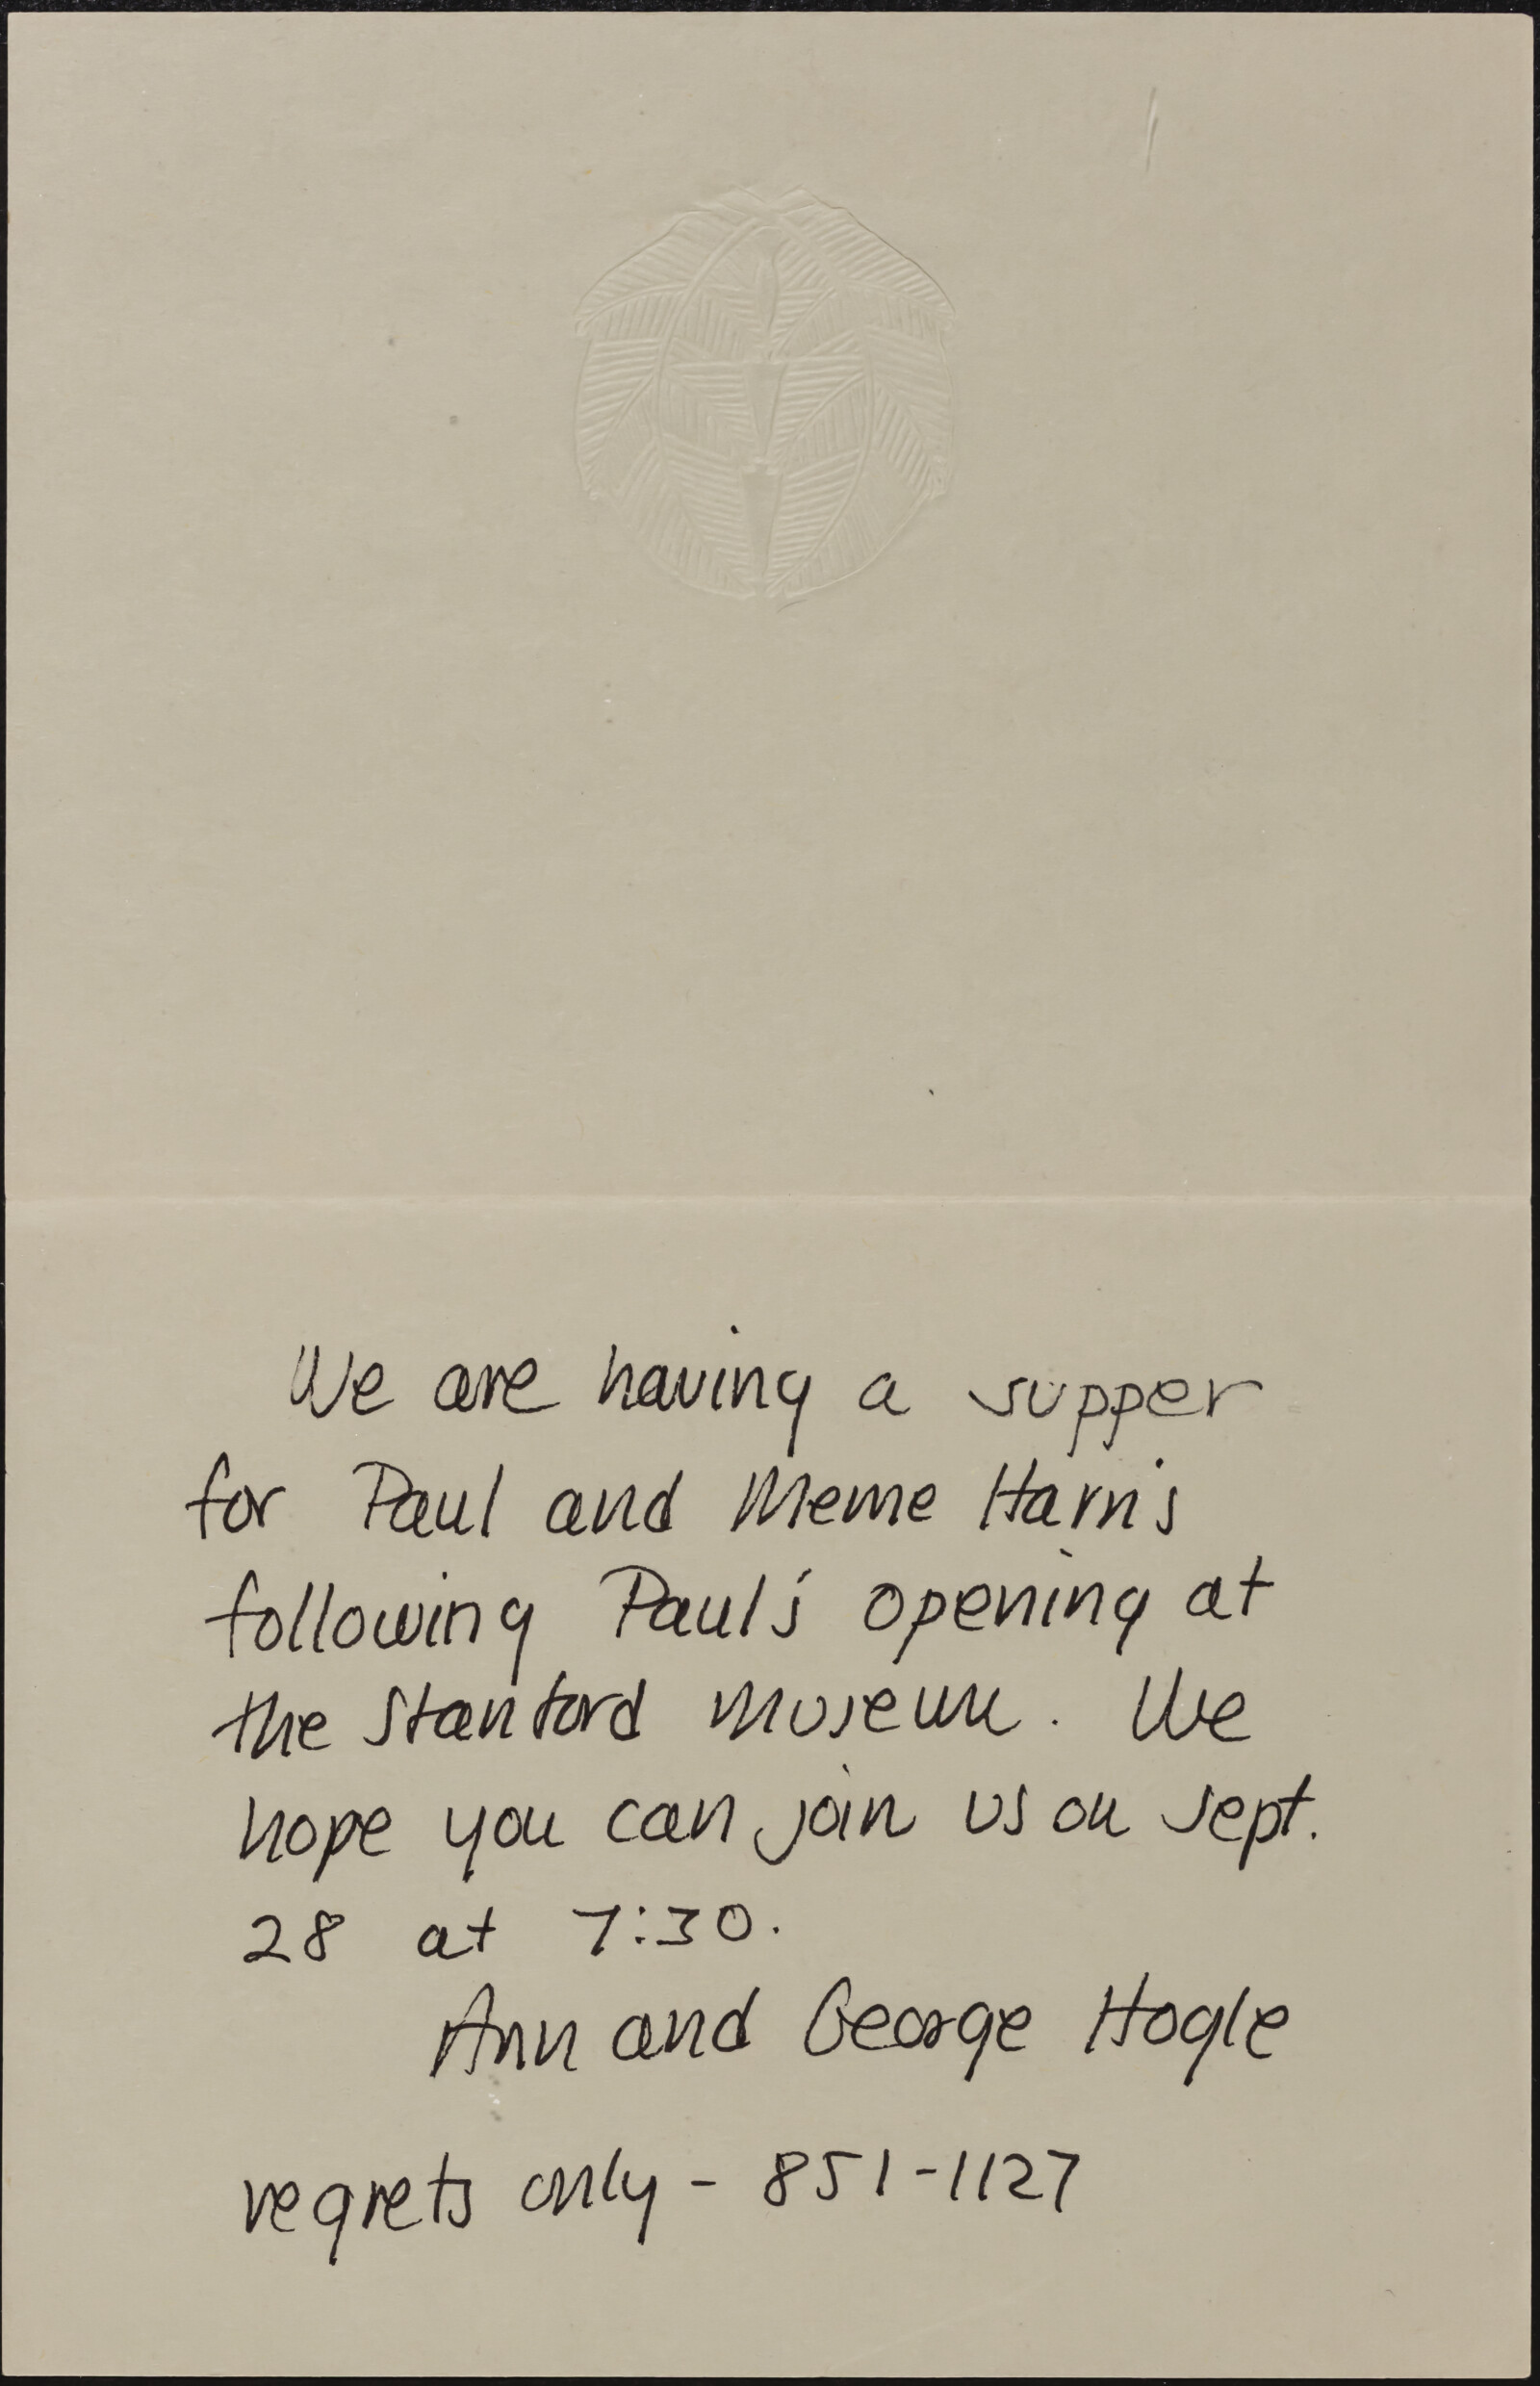 We are having a supper
for Paul and Meme Harris
following Paul's opening at
the Stanford Museum. We
hope you can join us on Sept.
28 at 7:30.
Ann and George Hogle
regrets only - 851-1127